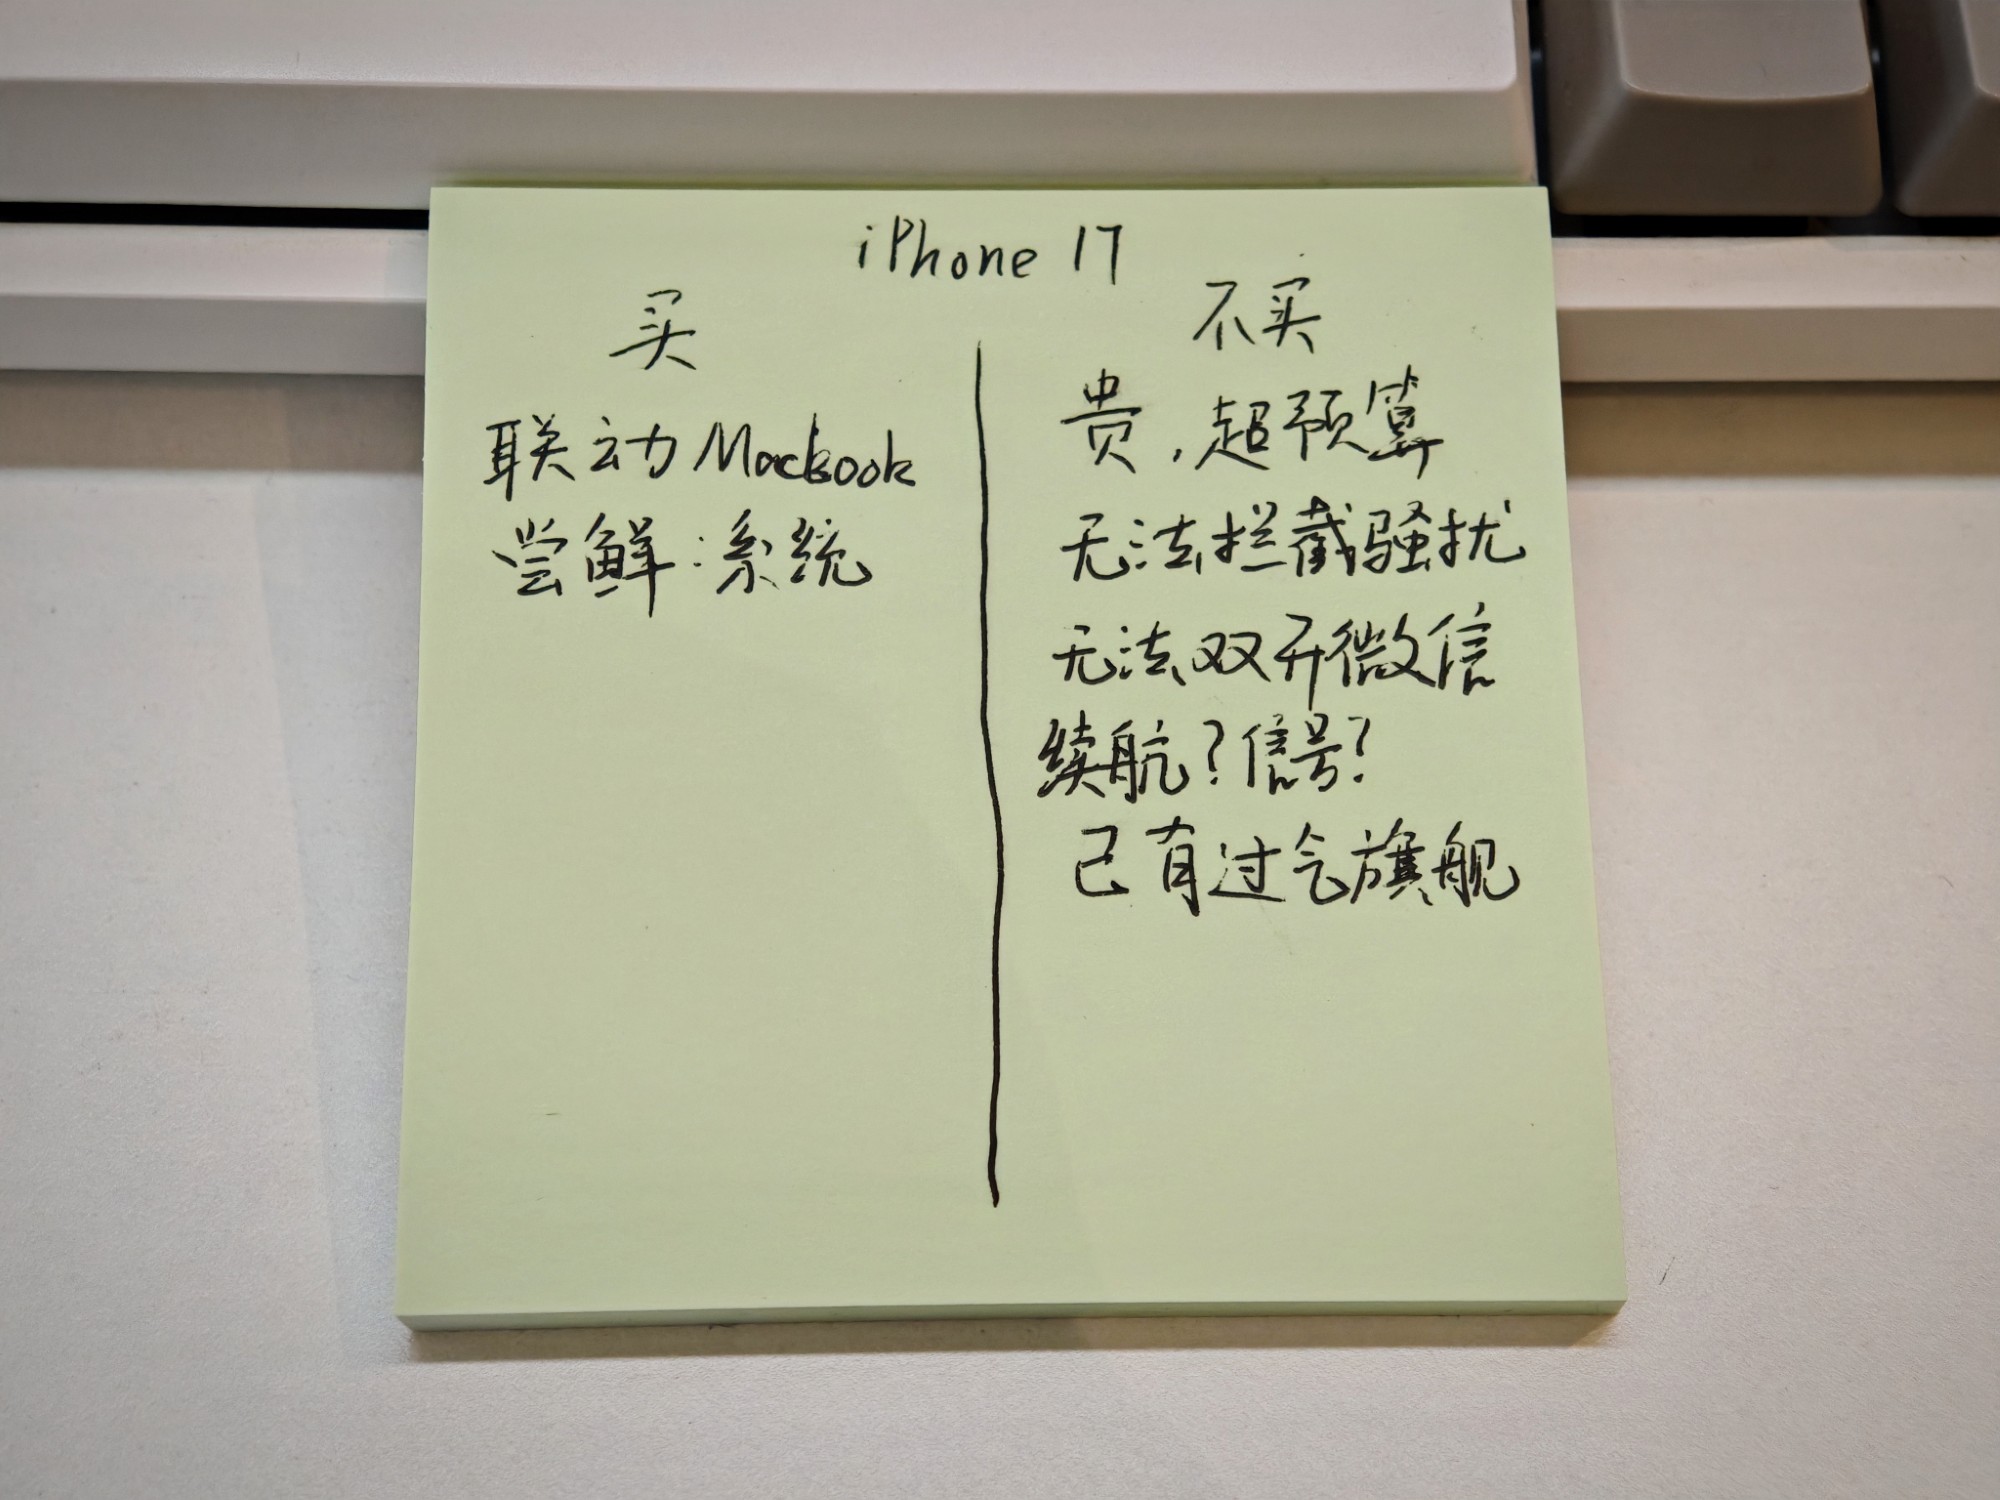 iPhone 17
买
联动Macbook
尝鲜:系统
不买
贵,超预算
无法拦截骚扰
无法双开微信
续航?信号?
已有过气旗舰